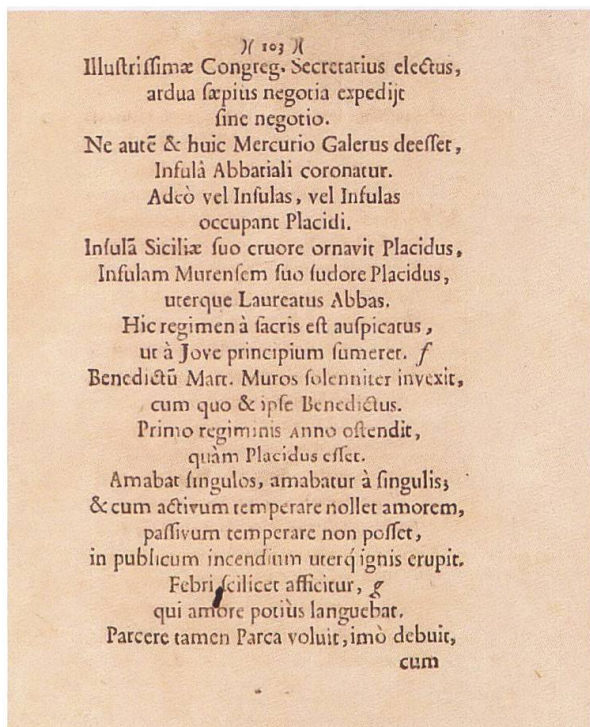 )( 103 )(
Illustrissimæ Congreg. Secretarius electus,
ardua sæpius negotia expedijt
sine negotio.
Ne autẽ & huic Mercurio Galerus deesset,
Infulâ Abbatiali coronatur.
Adeò vel Insulas, vel Infulas
occupant Placidi.
Insulã Siciliæ suo cruore ornavit Placidus,
Insulam Murensem suo sudore Placidus,
uterque Laureatus Abbas.
Hic regimen à sacris est auspicatus,
ut à Jove principium sumeret. f
Benedictũ Mart. Muros solenniter invexit,
cum quo & ipse Benedictus.
Primo regiminis Anno ostendit,
quàm Placidus esset.
Amabat singulos, amabatur à singulis;
& cum activum temperare nollet amorem,
passivum temperare non posset,
in publicum incendium uterq́ ignis erupit.
Febri scilicet afficitur, g
qui amore potiùs languebat.
Parcere tamen Parca voluit, imò debuit,
cum